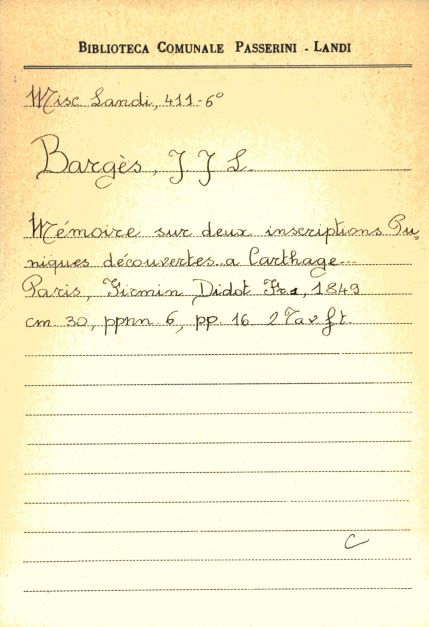 BIBLIOTECA COMUNALE PASSERINI - LANDI
Misc Landi, 411-6°
Bargès, J J L
Mémoire sur deux inscriptions Pu-
niques découvertes a Carthage...
Paris, Firmin Didot Fr., 1849
cm 30, ppnn 6, pp. 16 2 Tav ft.
C